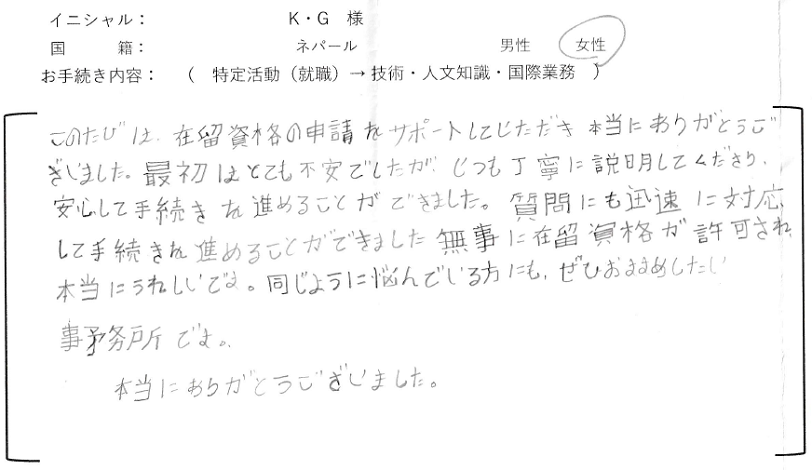 イニシャル： K・G 様
国 籍： ネパール 男性 女性
お手続き内容： （ 特定活動（就職）→ 技術・人文知識・国際業務 ）
このたびは、在留資格の申請をサポートしていただき 本当にありがとうご
ざいました。最初はとても不安でしたが、いつも丁寧に説明してくださり、
安心して手続きを進めることができました。質問にも迅速に対応
して手続きを進めることができました 無事に在留資格が許可され、
本当にうれしいです。同じように悩んでいる方にも、ぜひおすすめしたい
事務所です。
本当にありがとうございました。